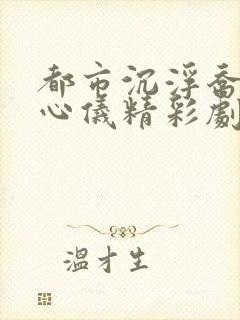 都市沉浮喬
心儀精彩劇
溫才生